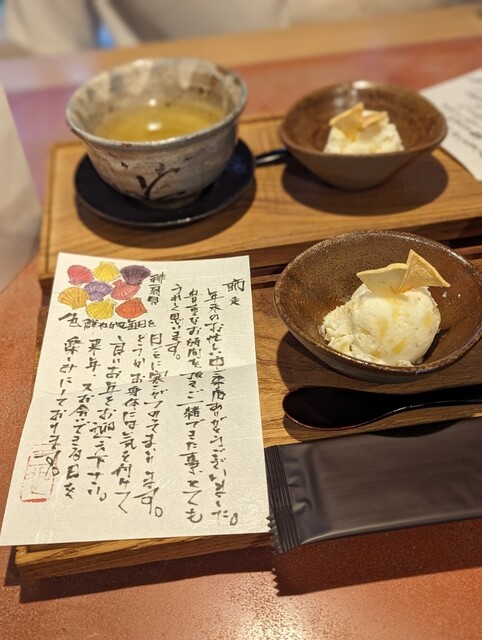 師走
年末のお忙しい中ご来店ありがとうございました。
貴重なお時間を ご一緒できた事、とても
うれしく思います。
日ごとに寒さがつのってまいります。
どうかお身体には気を付けて
良いお年をお迎え下さい。
来年、又お会いできる日を
楽しみにしております。
緋扇貝
色鮮やかな毎日を